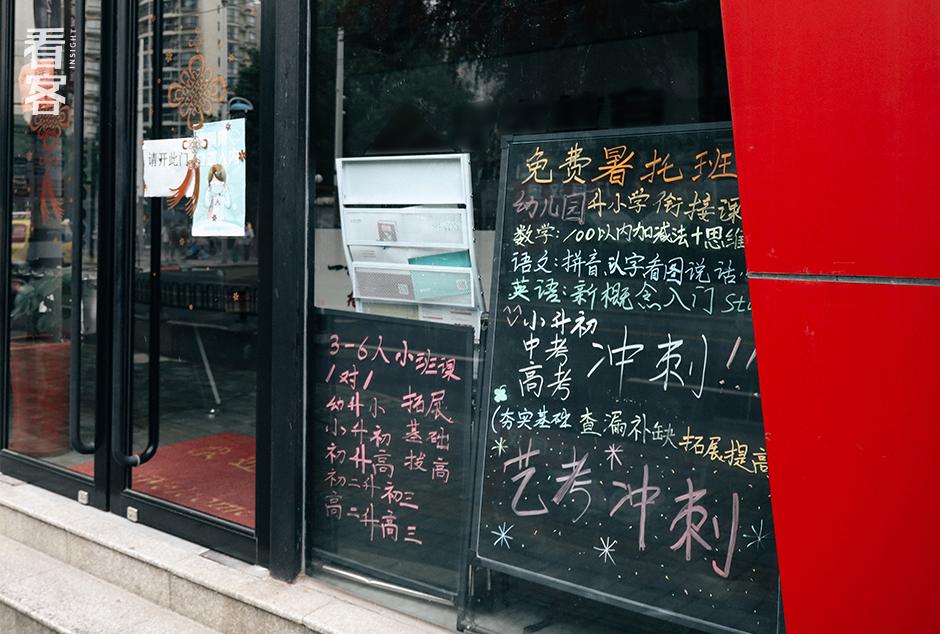 看客
INSIGHT
请开此门
3-6人小班课
1对1
幼升小 拓展
小升初 基础
初升高 拔高
初二升初三
高二升高三
免费暑托班
幼儿园升小学衔接课
数学:100以内加减法+思维
语文:拼音、认字看图说话
英语:新概念入门 Sta
小升初
中考
高考
冲刺!!
(夯实基础 查漏补缺 拓展提高
艺考冲刺